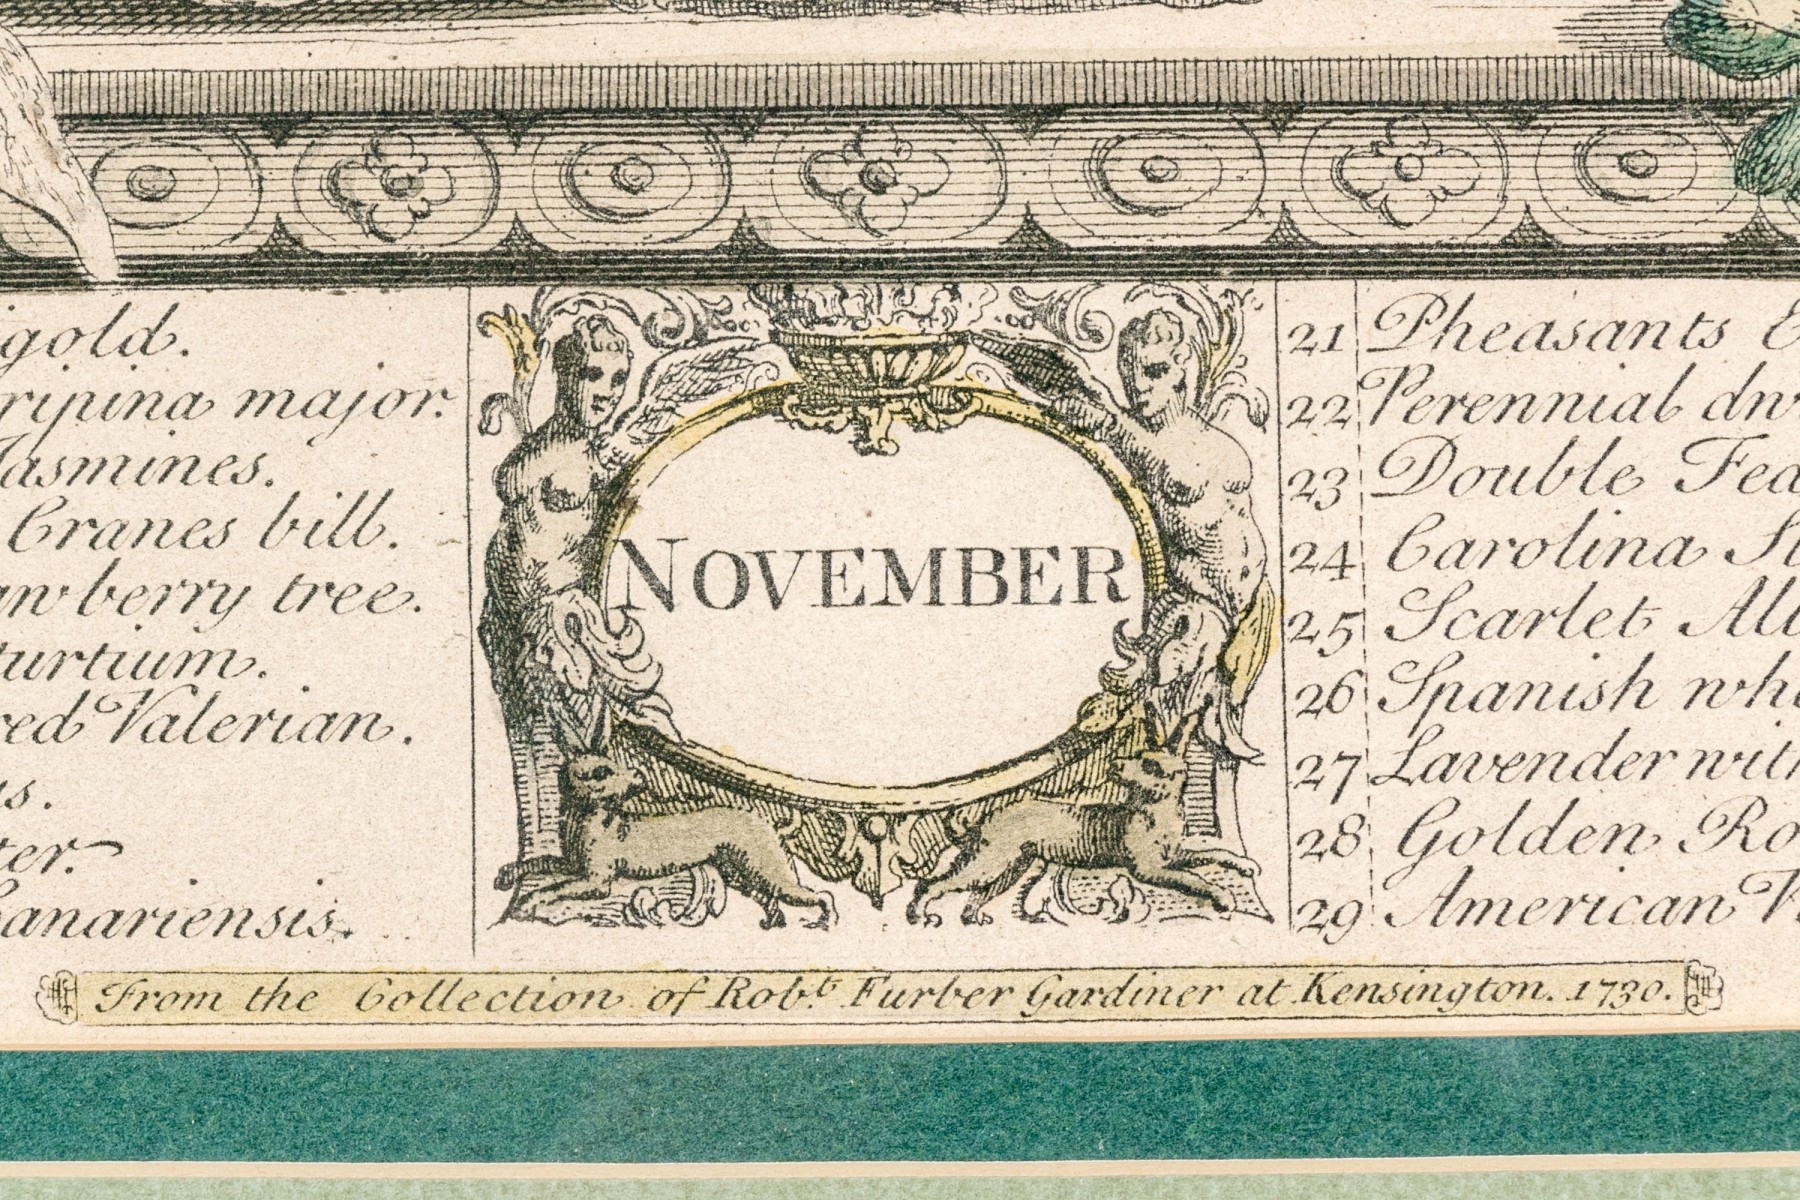 igold.
ripina major.
Jasmines.
Cranes bill.
aw berry tree.
turtium.
red Valerian.
us.
ter.
Canariensis.
NOVEMBER
21 Pheasants E
22 Perennial dw
23 Double Fea
24 Carolina St
25 Scarlet Alt
26 Spanish whi
27 Lavender with
28 Golden Ro
29 American V
From the Collection of Rob.t Furber Gardiner at Kensington. 1730.